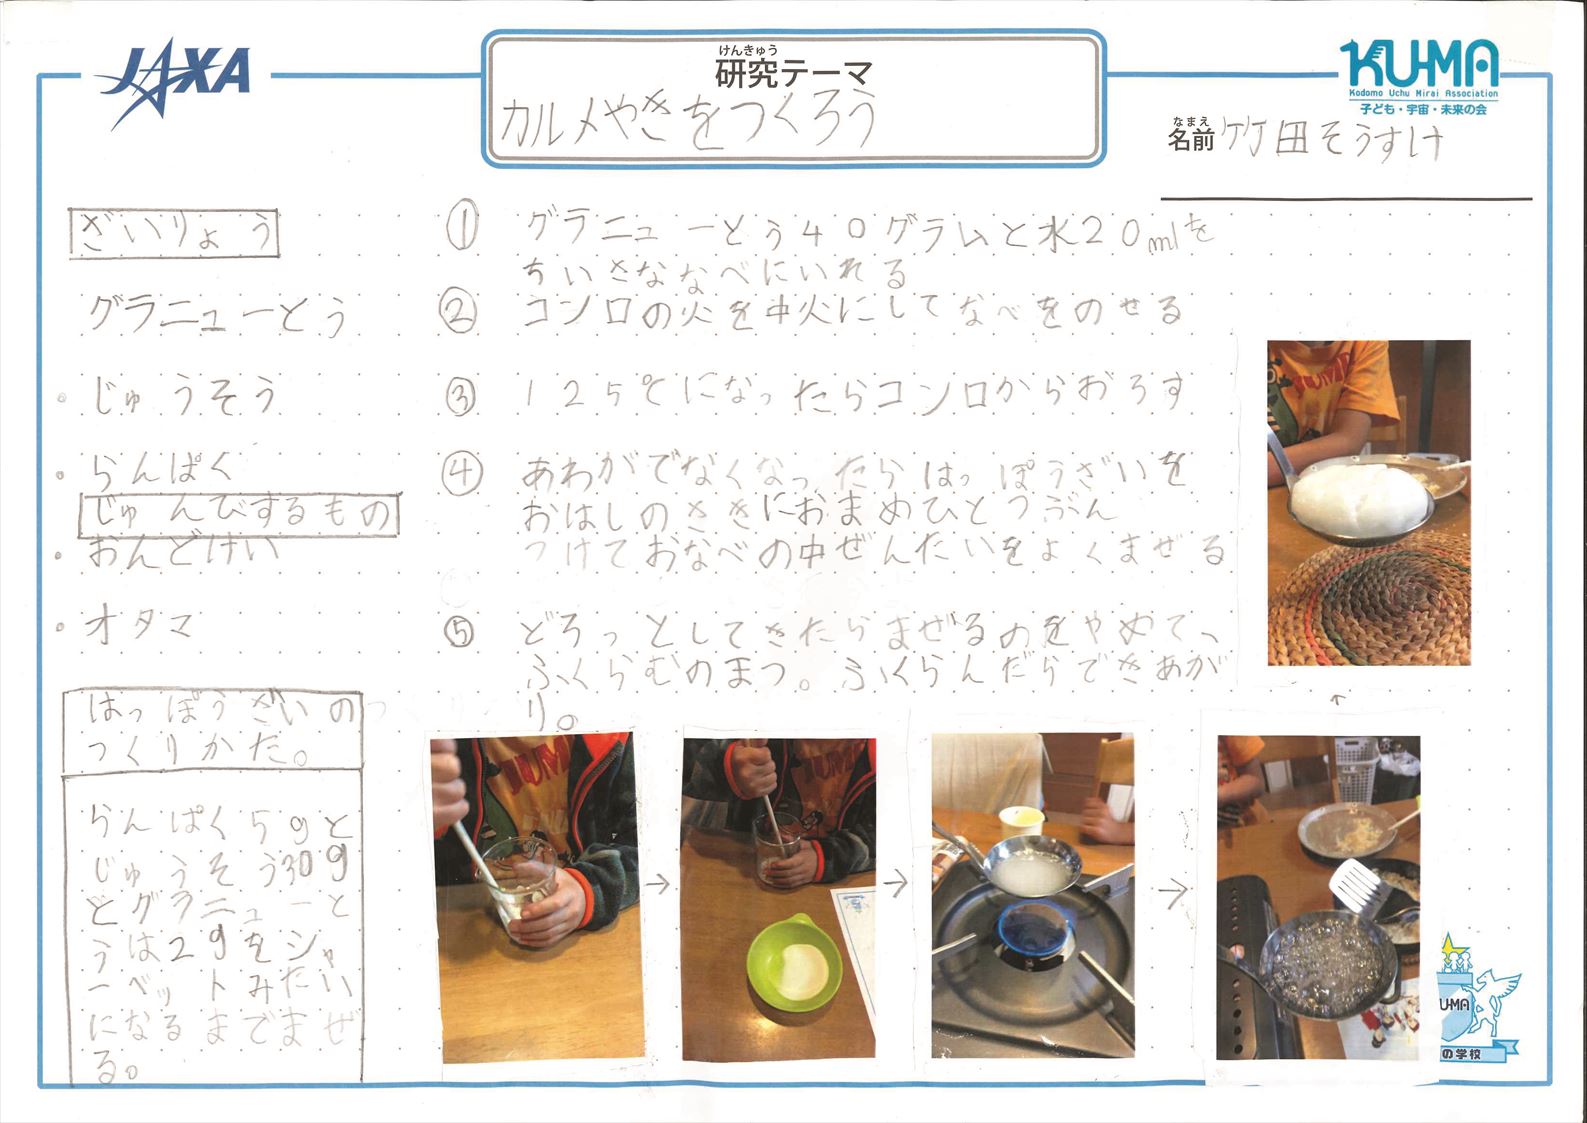 JAXA
けんきゅう
研究テーマ
カルメやきをつくろう
KUMA
Kodomo Uchu Mirai Association
子ども・宇宙・未来の会
なまえ
名前 竹田そうすけ
ざいりょう
グラニューとう
・じゅうそう
・らんぱく
じゅんびするもの
・おんどけい
・オタマ
はっぽうざいの
つくりかた。
らんぱく5gと
じゅうそう30g
とグラニューと
うは2gをシャ
ーベットみたい
になるまでまぜ
る。
① グラニューとう40グラムと水20mlを
ちいさななべにいれる
② コンロの火を中火にしてなべをのせる
③ 125℃になったらコンロからおろす
④ あわがでなくなったらはっぽうざいを
おはしのさきにおまめひとつぶん
つけておなべの中ぜんたいをよくまぜる
⑤ どろっとしてきたらまぜるのをやめて、
ふくらむのまつ。ふくらんだらできあが
り。
→
→
→
↑
UMA
の学校